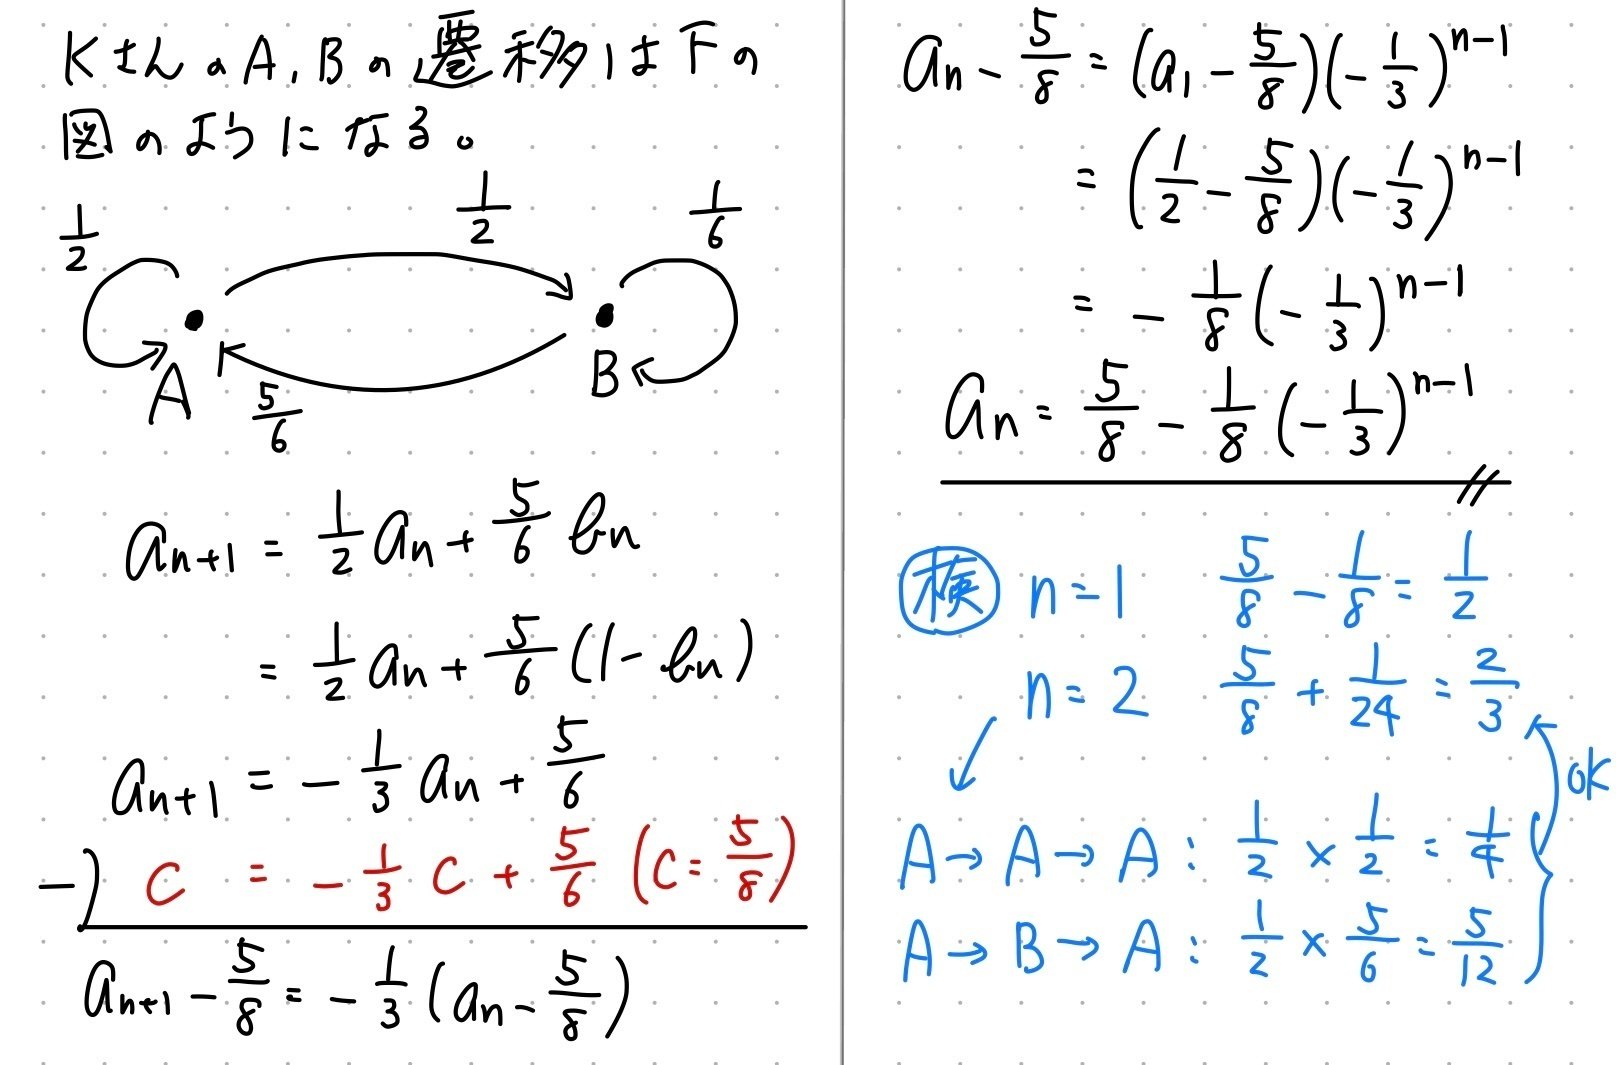 KさんのA,Bの遷移は下の
図のようになる。
1/2
1/2
1/6
A
B
5/6
a_{n+1} = 1/2 a_n + 5/6 b_n
= 1/2 a_n + 5/6 (1 - b_n)
a_{n+1} = - 1/3 a_n + 5/6
-) c = - 1/3 c + 5/6 (c = 5/8)
a_{n+1} - 5/8 = - 1/3 (a_n - 5/8)
a_n - 5/8 = (a_1 - 5/8)(- 1/3)^{n-1}
= (1/2 - 5/8)(- 1/3)^{n-1}
= - 1/8 (- 1/3)^{n-1}
a_n = 5/8 - 1/8 (- 1/3)^{n-1}
検 n = 1 5/8 - 1/8 = 1/2
n = 2 5/8 + 1/24 = 2/3
OK
A → A → A : 1/2 × 1/2 = 1/4
A → B → A : 1/2 × 5/6 = 5/12